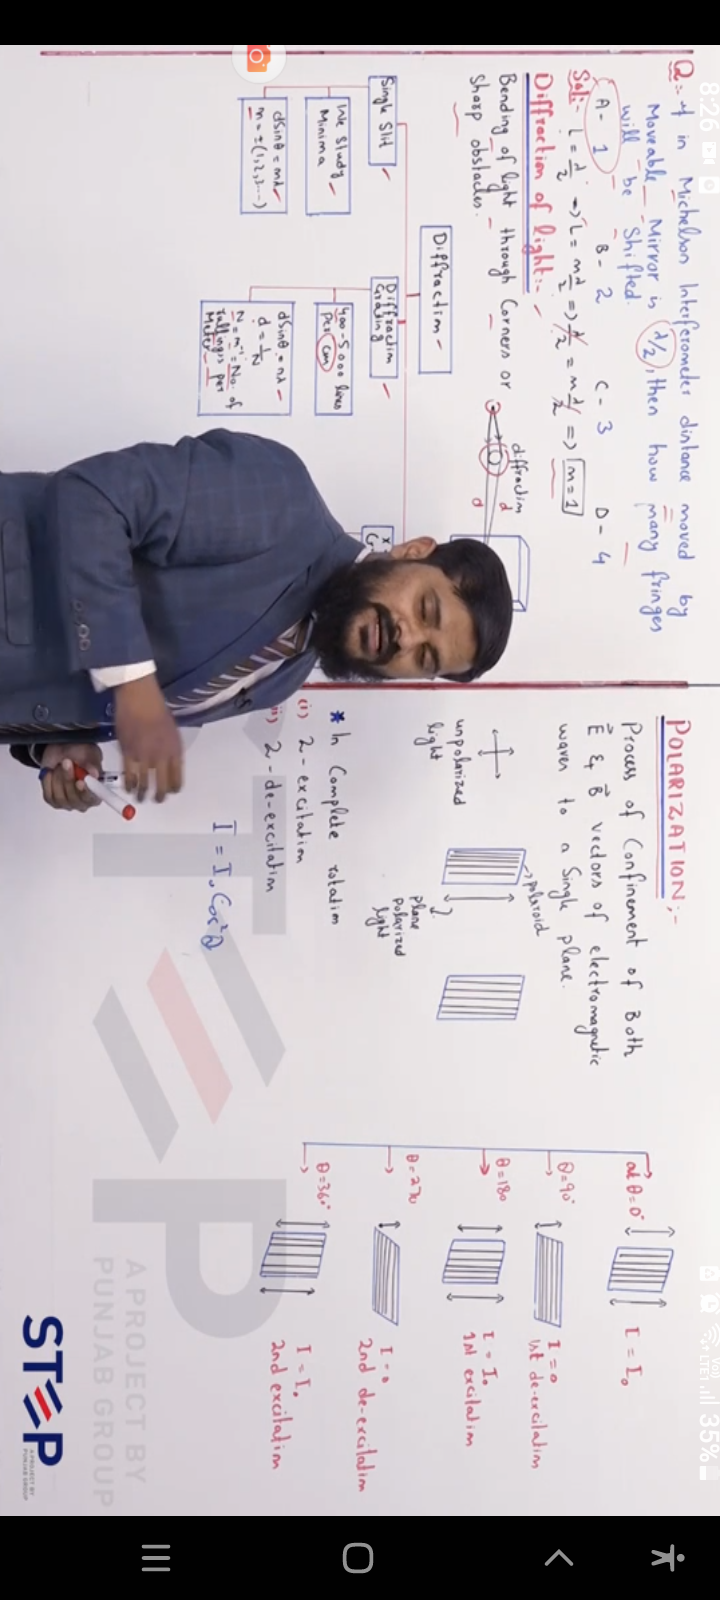 8:26
35%
Q:- If in Michelson Interferometer distance moved by
Moveable Mirror is λ/2, then how many fringes
will be Shifted.
A- 1 B- 2 C- 3 D- 4
Sol:- L = λ/2 => L = mλ/2 => λ/2 = mλ/2 => m=1
Diffraction of light:-
Bending of light through Corners or
Sharp obstacles.
diffraction
d
d
Diffraction
Single Slit
We Study
Minima
dSinθ = mλ
m = ±(1,2,3...)
Diffraction
Grating
400-5000 lines
per cm
dSinθ = nλ
d = 1/N
N = m⁻¹ = No. of
rulling's per
Meter
POLARIZATION:-
Process of Confinement of Both
E⃗ & B⃗ vectors of electromagnetic
waves to a Single plane.
unpolarized
light
polaroid
plane
polarized
light
* In Complete rotation
(i) 2-excitation
(ii) 2-de-excitation
I = I₀Cos²θ
at θ=0° I = I₀
θ=90° I = 0
1st de-excitation
θ=180 I = I₀
1st excitation
θ=270 I = 0
2nd de-excitation
θ=360° I = I₀
2nd excitation
A PROJECT BY
PUNJAB GROUP
STEP
A PROJECT BY
PUNJAB GROUP